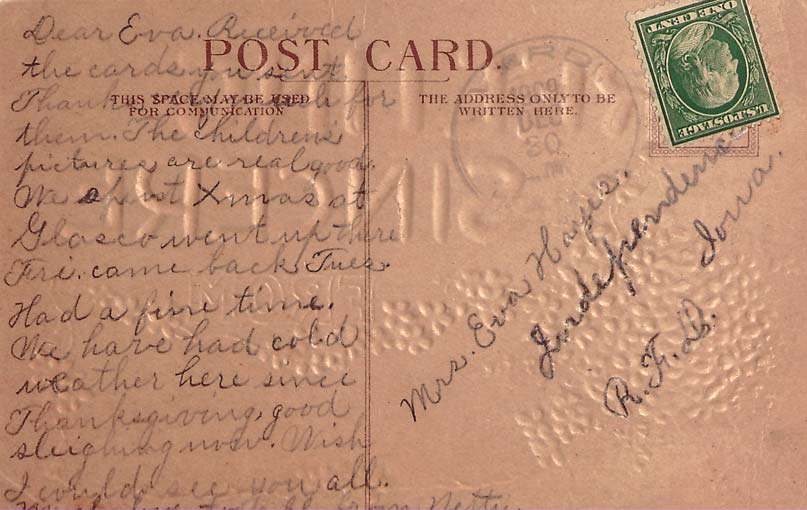 Dear Eva. Received
the cards you sent.
Thank you much for
them. The children's
pictures are real good.
We spent Xmas at
Glasco went up there
Fri. came back Tues.
Had a fine time.
We have had cold
weather here since
Thanksgiving, good
sleighing now. Wish
I could see you all.
Much love to all from Netty.
POST CARD.
THIS SPACE MAY BE USED
FOR COMMUNICATION
THE ADDRESS ONLY TO BE
WRITTEN HERE.
DEC
30
U.S. POSTAGE
ONE CENT
Mrs. Eva Hayes.
Independence
Iowa.
R.F.D.
SINCERE